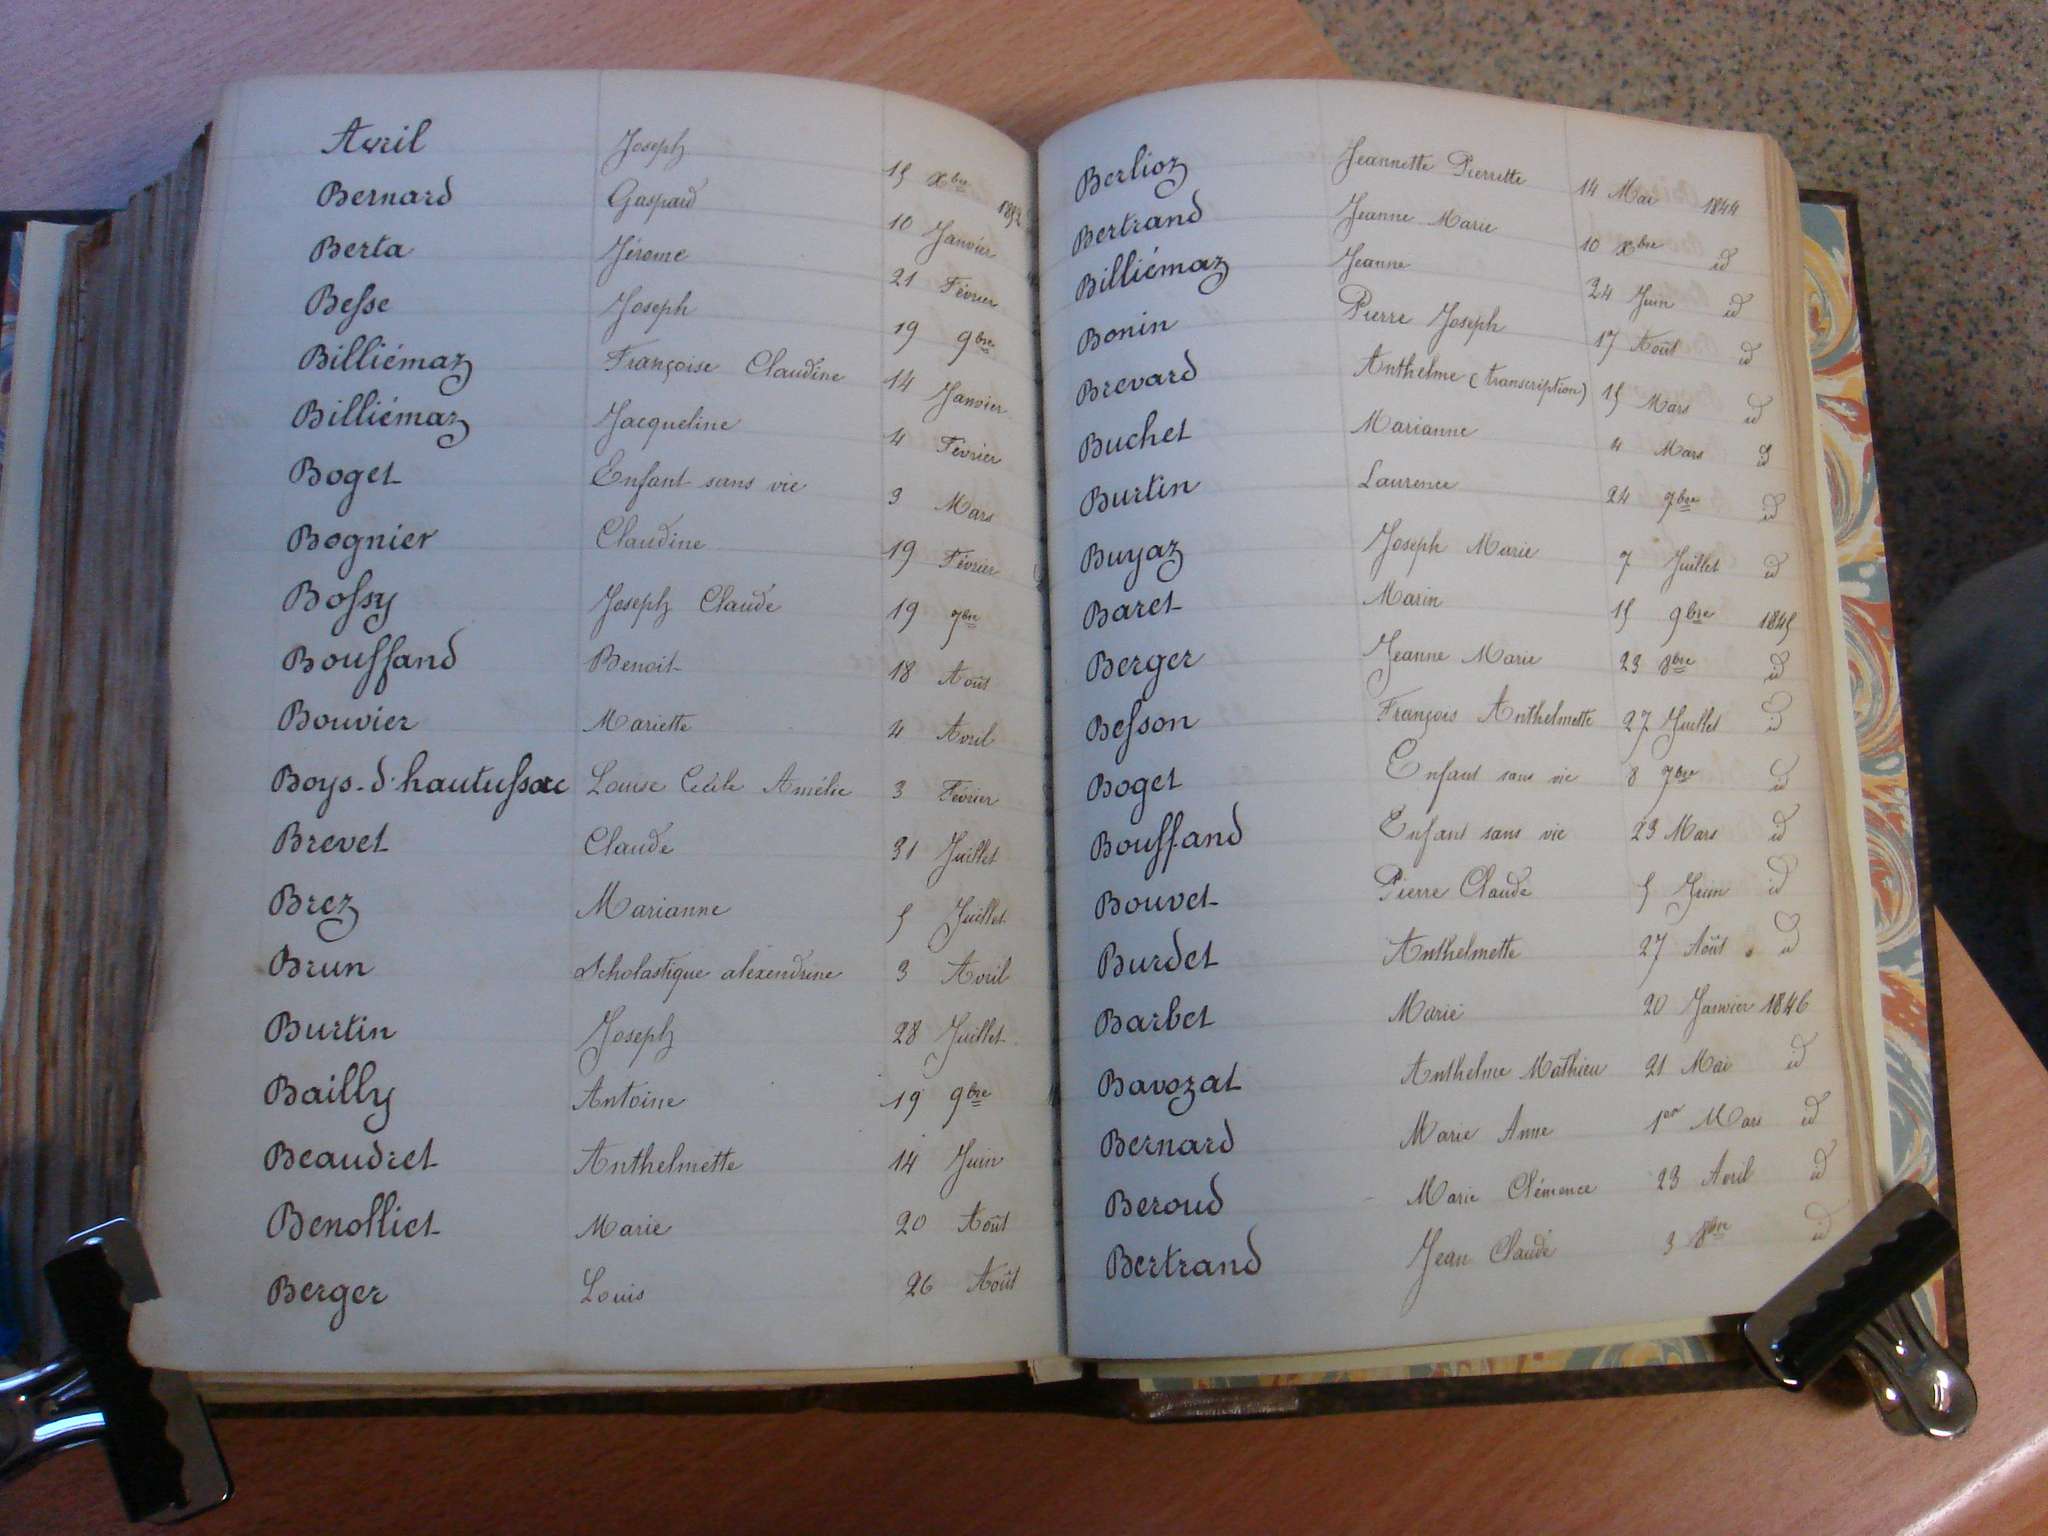 Avril Joseph 15 xbre 1852
Bernard Gaspard 10 Janvier
Berta Jérome 21 Février
Besse Joseph 19 9bre
Billiémaz Françoise Claudine 14 Janvier
Billiémaz Jacqueline 4 Février
Boget Enfant sans vie 3 Mars
Bognier Claudine 19 Février
Bossy Joseph Claude 19 7bre
Bouffand Benoit 18 Août
Bouvier Mariette 4 Avril
Boys-d'hautussac Louise Cécile Amélie 3 Février
Brevet Claude 31 Juillet
Brez Marianne 5 Juillet
Brun Scholastique alexendrine 3 Avril
Burtin Joseph 28 Juillet
Bailly Antoine 19 9bre
Beaudret Anthelmette 14 Juin
Benolliet Marie 20 Août
Berger Louis 26 Août
Berlioz Jeannette Pierrette 14 Mai 1844
Bertrand Jeanne Marie 10 xbre id
Billiémaz Jeanne 24 Juin id
Bonin Pierre Joseph 17 Août id
Brevard Anthelme (transcription) 15 Mars id
Buchet Marianne 4 Mars id
Burtin Laurence 24 7bre id
Buyaz Joseph Marie 7 Juillet id
Baret Marin 15 9bre 1845
Berger Jeanne Marie 23 8bre id
Besson François Anthelmette 27 Juillet id
Boget Enfant sans vie 8 7bre id
Bouffand Enfant sans vie 23 Mars id
Bouvet Pierre Claude 5 Juin id
Burdet Anthelmette 27 Août id
Barbet Marie 20 Janvier 1846
Bavozat Anthelme Mathieu 21 Mai id
Bernard Marie Anne 1er Mars id
Beroud Marie Clémence 23 Avril id
Bertrand Jean Claude 3 8bre id